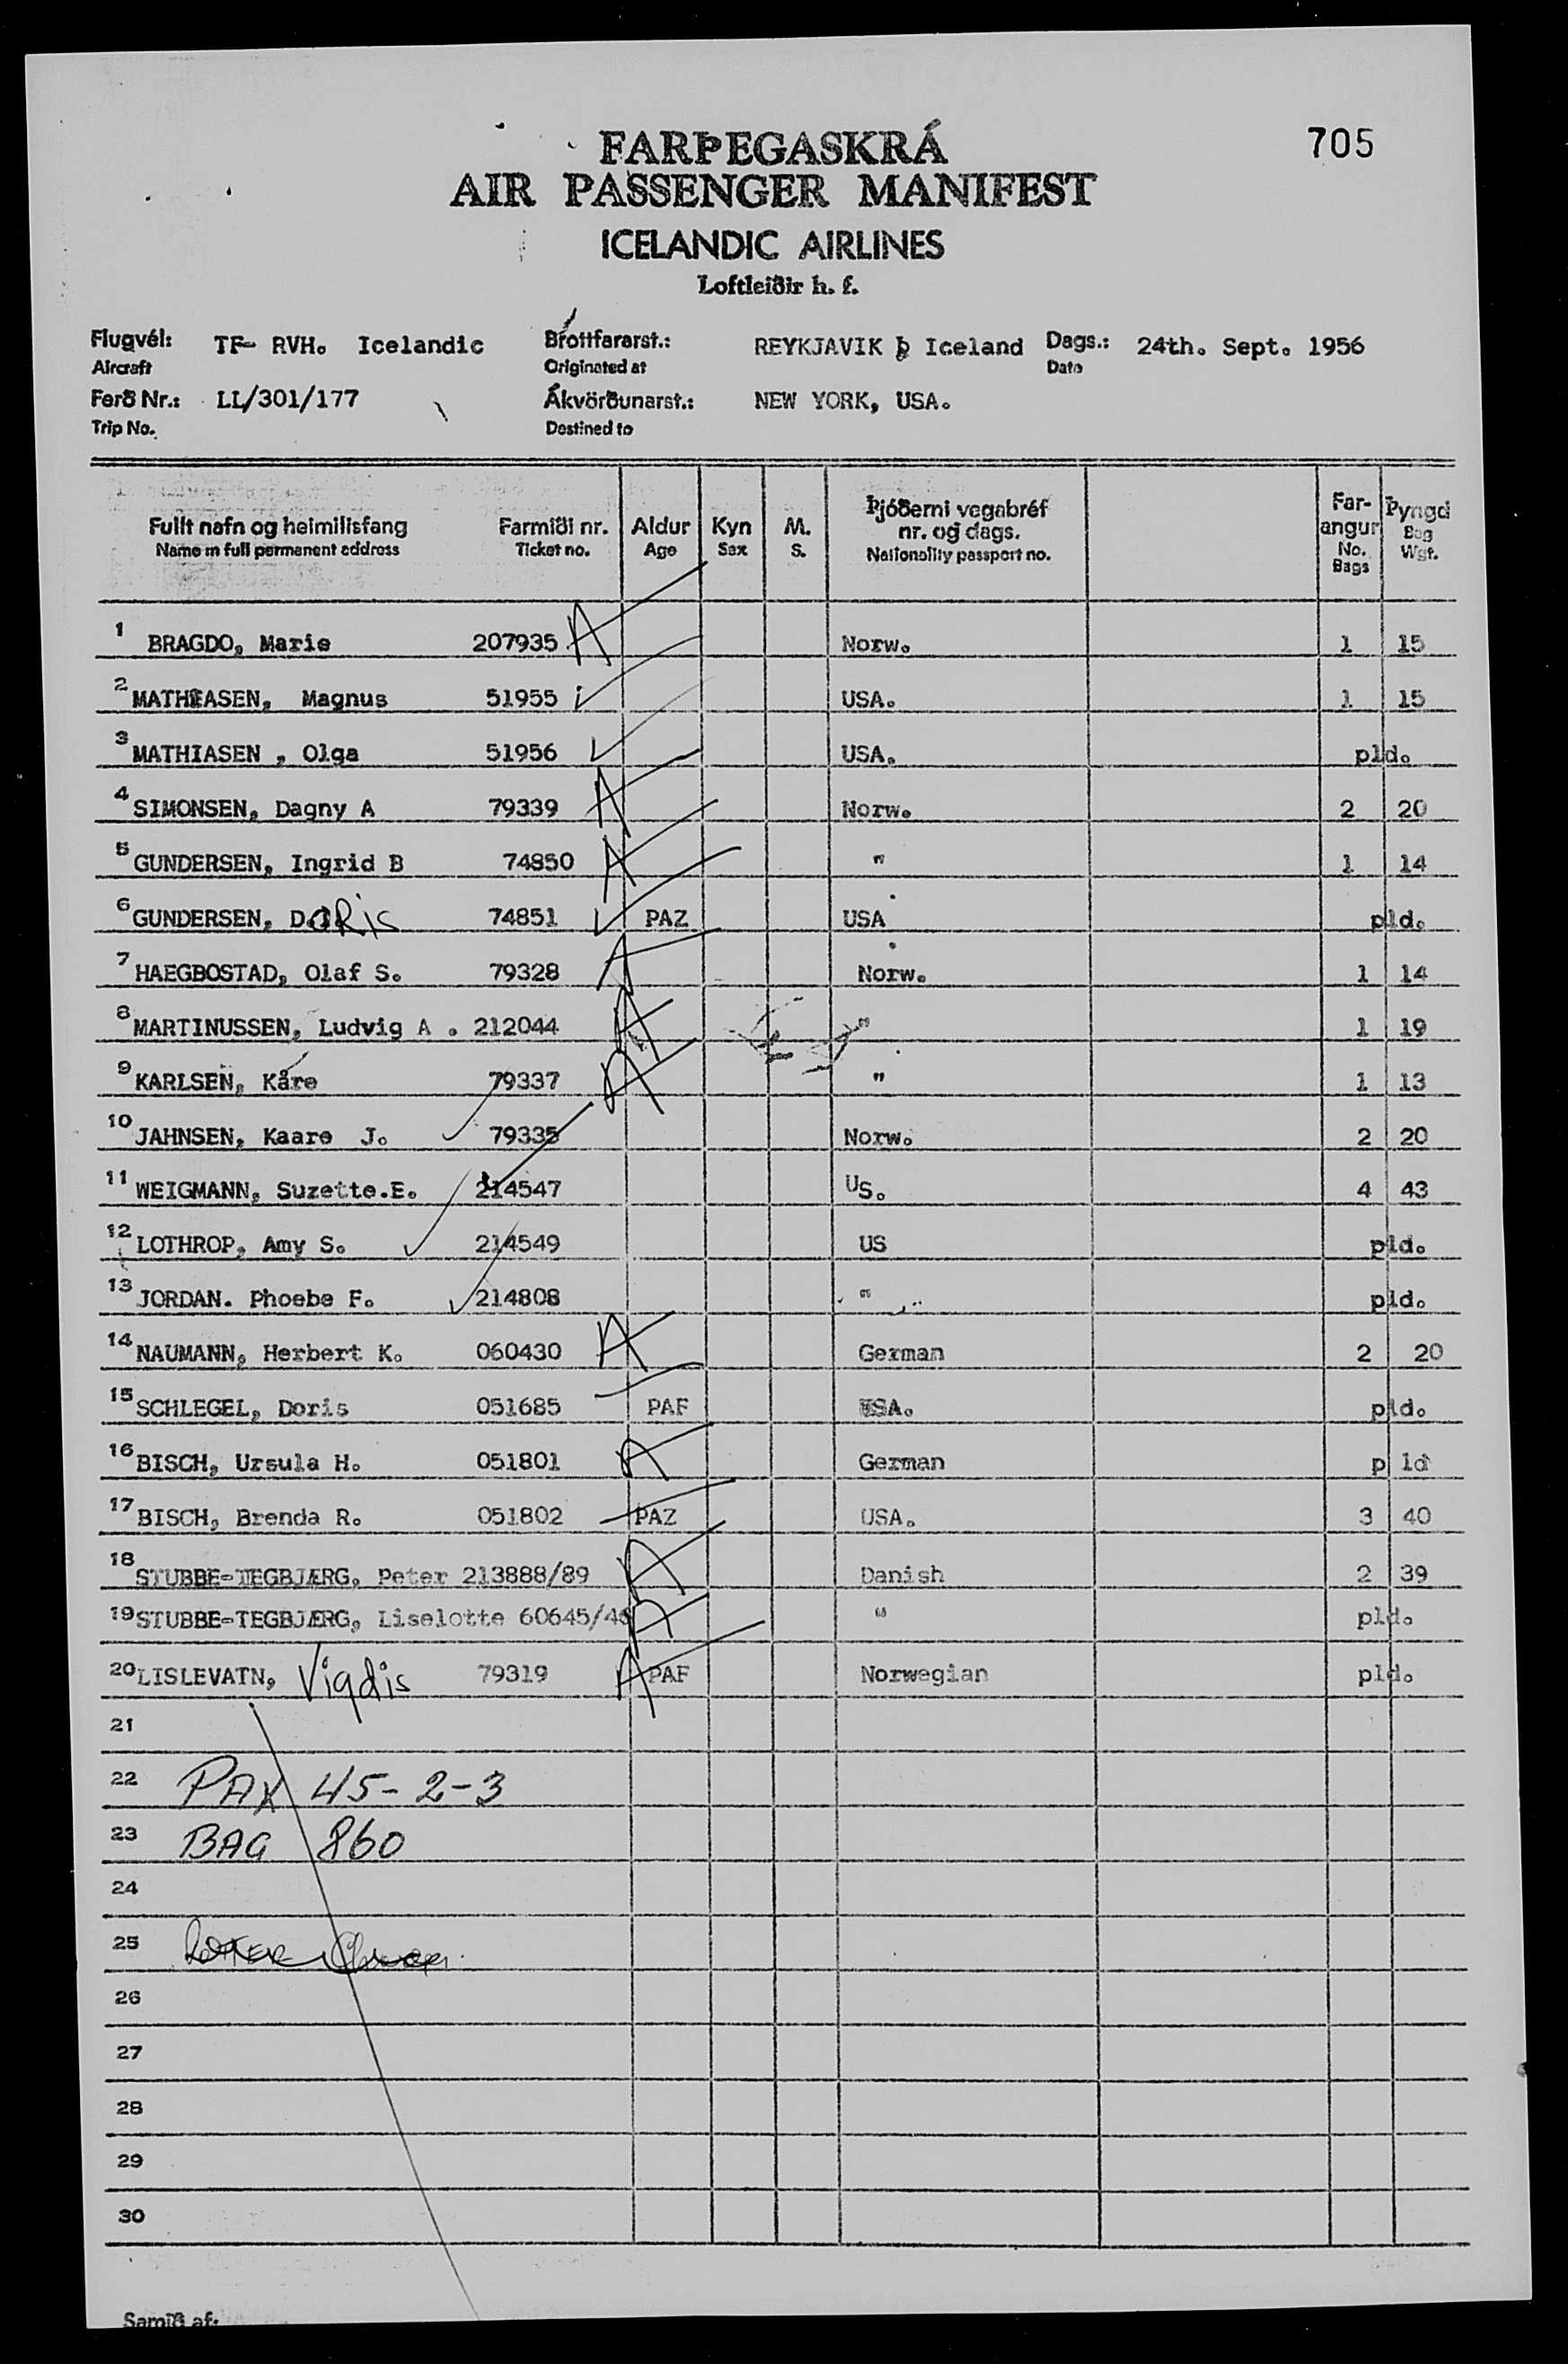 705
FARÞEGASKRÁ
AIR PASSENGER MANIFEST
ICELANDIC AIRLINES
Loftleiðir h. f.
Flugvél: TF- RVH. Icelandic Brottfararst.: REYKJAVIK Iceland Dags.: 24th. Sept. 1956
Aircraft Originated at Date
Ferð Nr.: LL/301/177 Ákvörðunarst.: NEW YORK, USA.
Trip No. Destined to
Fullt nafn og heimilisfang Farmiði nr. Aldur Kyn M. Þjóðerni vegabréf nr. og dags. Far-angur Þyngd
Name in full permanent address Ticket no. Age Sex S. Nationality passport no. No. Bags Bag Wgt.
1 BRAGDO, Marie 207935 A Norw. 1 15
2 MATHIASEN, Magnus 51955 USA. 1 15
3 MATHIASEN , Olga 51956 USA. pld.
4 SIMONSEN, Dagny A 79339 A Norw. 2 20
5 GUNDERSEN, Ingrid B 74850 A " 1 14
6 GUNDERSEN, DORis 74851 PAZ USA pld.
7 HAEGBOSTAD, Olaf S. 79328 A Norw. 1 14
8 MARTINUSSEN, Ludvig A . 212044 A " 1 19
9 KARLSEN, Kåre 79337 A " 1 13
10 JAHNSEN, Kaare J. 79335 Norw. 2 20
11 WEIGMANN, Suzette.E. 214547 US. 4 43
12 LOTHROP, Amy S. 214549 US pld.
13 JORDAN. Phoebe F. 214808 " pld.
14 NAUMANN, Herbert K. 060430 A German 2 20
15 SCHLEGEL, Doris 051685 PAF USA. pld.
16 BISCH, Ursula H. 051801 A German p ld
17 BISCH, Brenda R. 051802 PAZ USA. 3 40
18 STUBBE-TEGBJÆRG, Peter 213888/89 A Danish 2 39
19 STUBBE-TEGBJÆRG, Liselotte 60645/46 A " pld.
20 LISLEVATN, Vigdis 79319 A PAF Norwegian pld.
21
22 PAX 45-2-3
23 BAG 860
24
25
26
27
28
29
30
Samið af: